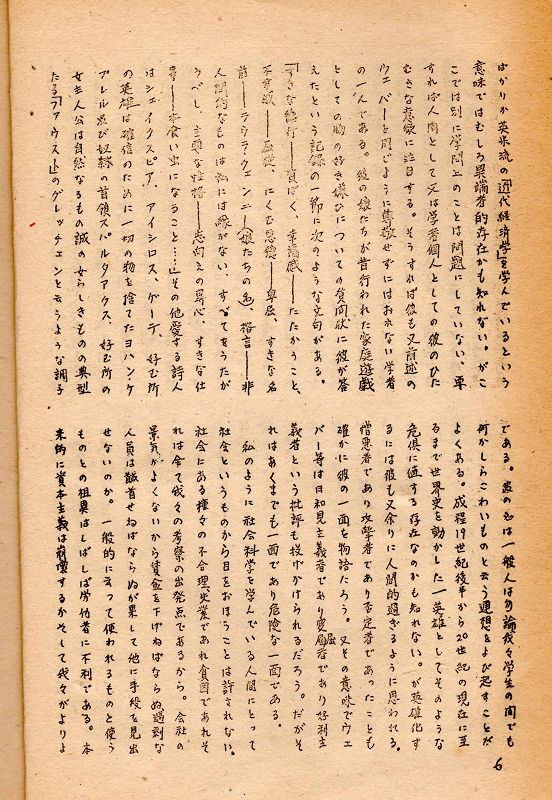 ばかりか英米流の「近代経済学」を学んでいるという
意味ではむしろ異端者的存在かも知れない。がこ
こでは別に学問上のことは問題にしていない、単
すれば人間として又は学者個人としての彼のひた
むきな意欲に注目する。そうすれば彼も又前述の
ウエーバーと同じように尊敬せずにはおれない学者
の一人である。彼の娘たちが昔行われた家庭遊戯
としての物の好き嫌いについての質問状に彼が答
えたという記録の一節に次のような文句がある。
「すきな徳行――質ぼく、幸福感――たたかうこと、
不幸感――屈従、にくむ悪徳――卑屈、すきな名
前――ラウラ、イエンニー(娘たちの名)格言――非
人間的なものは私には縁がない、すべてをうたが
うべし、主要な性格――志向えの専心、すきな仕
事――本食い虫になること……」その他愛する詩人
はシェイクスピア、アイシロス、ゲーテ、好む所
の英雄は確信のために一切の物を捨てたヨハンケ
プレル及び奴隷の首領スパルタクス、好む所の
女主人公は自然なるもの誠の女らしきものの典型
たる「ファウスト」のグレッチェンと云うような調子
である。彼の名は一般人は勿論我々学生の間でも
何かしらこわいものと云う連想をよび起すことが
よくある。成程19世紀後半から20世紀の現在に至
るまで世界史を動かした一英雄としてそのような
危惧に価する存在なのかも知れない。が英雄化す
るには彼も又余りに人間的過ぎるように思われる。
憎悪者であり攻撃者であり否定者であったことも
確かに彼の一面を物語だろう。又その意味でウエ
バー等は日和見主義者であり卑屈者であり好利主
義者という批評も投げかけられるだろう。だがそ
れはあくまでも一面であり危険な一面である。
私のように社会科学を学んでいる人間にとって
社会というものから目をおほうことは許されない。
社会にある種々の不合理失業であれ貧困であれそ
れは全て我々の考察の出発点であるから。会社の
景気がよくないから賃金を下げねばならぬ過剰な
人員は馘首せねばならぬが果して他に手段を見出
せないのか。一般的に云って使われるものと使う
ものとの相異はしばしば労仂者に不利である。本
来的に資本主義は崩壊するかそして我々がよりよ
6